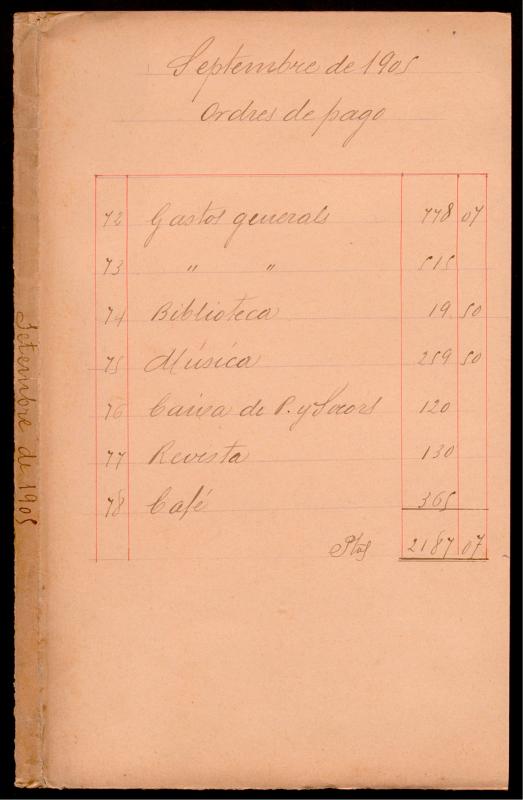 Septembre de 1905
Ordres de pago
72 Gastos generals 778 07
73 " " 515
74 Biblioteca 19 50
75 Música 259 50
76 Caixa de P. y Socors 120
77 Revista 130
78 Café 365
Ptas 2187 07
Setembre de 1905